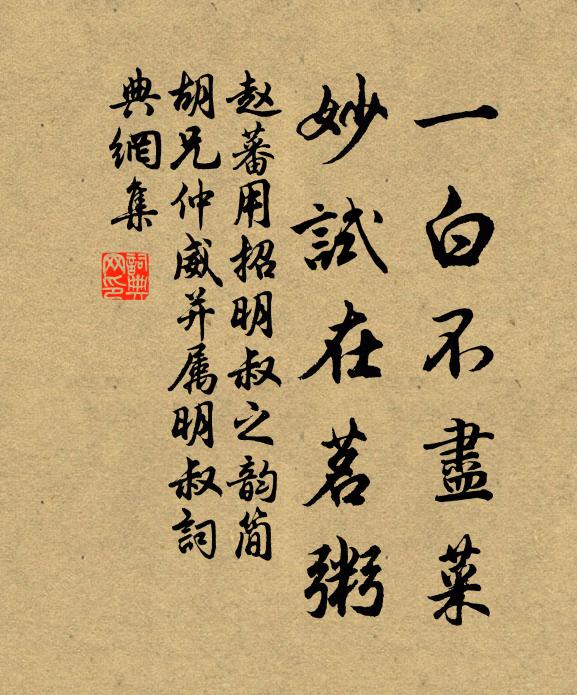 一白不盡菜
妙試在茗粥
赵蕃用招明叔之韵简
胡兄仲威并属明叔詞
典網集
詞典網印